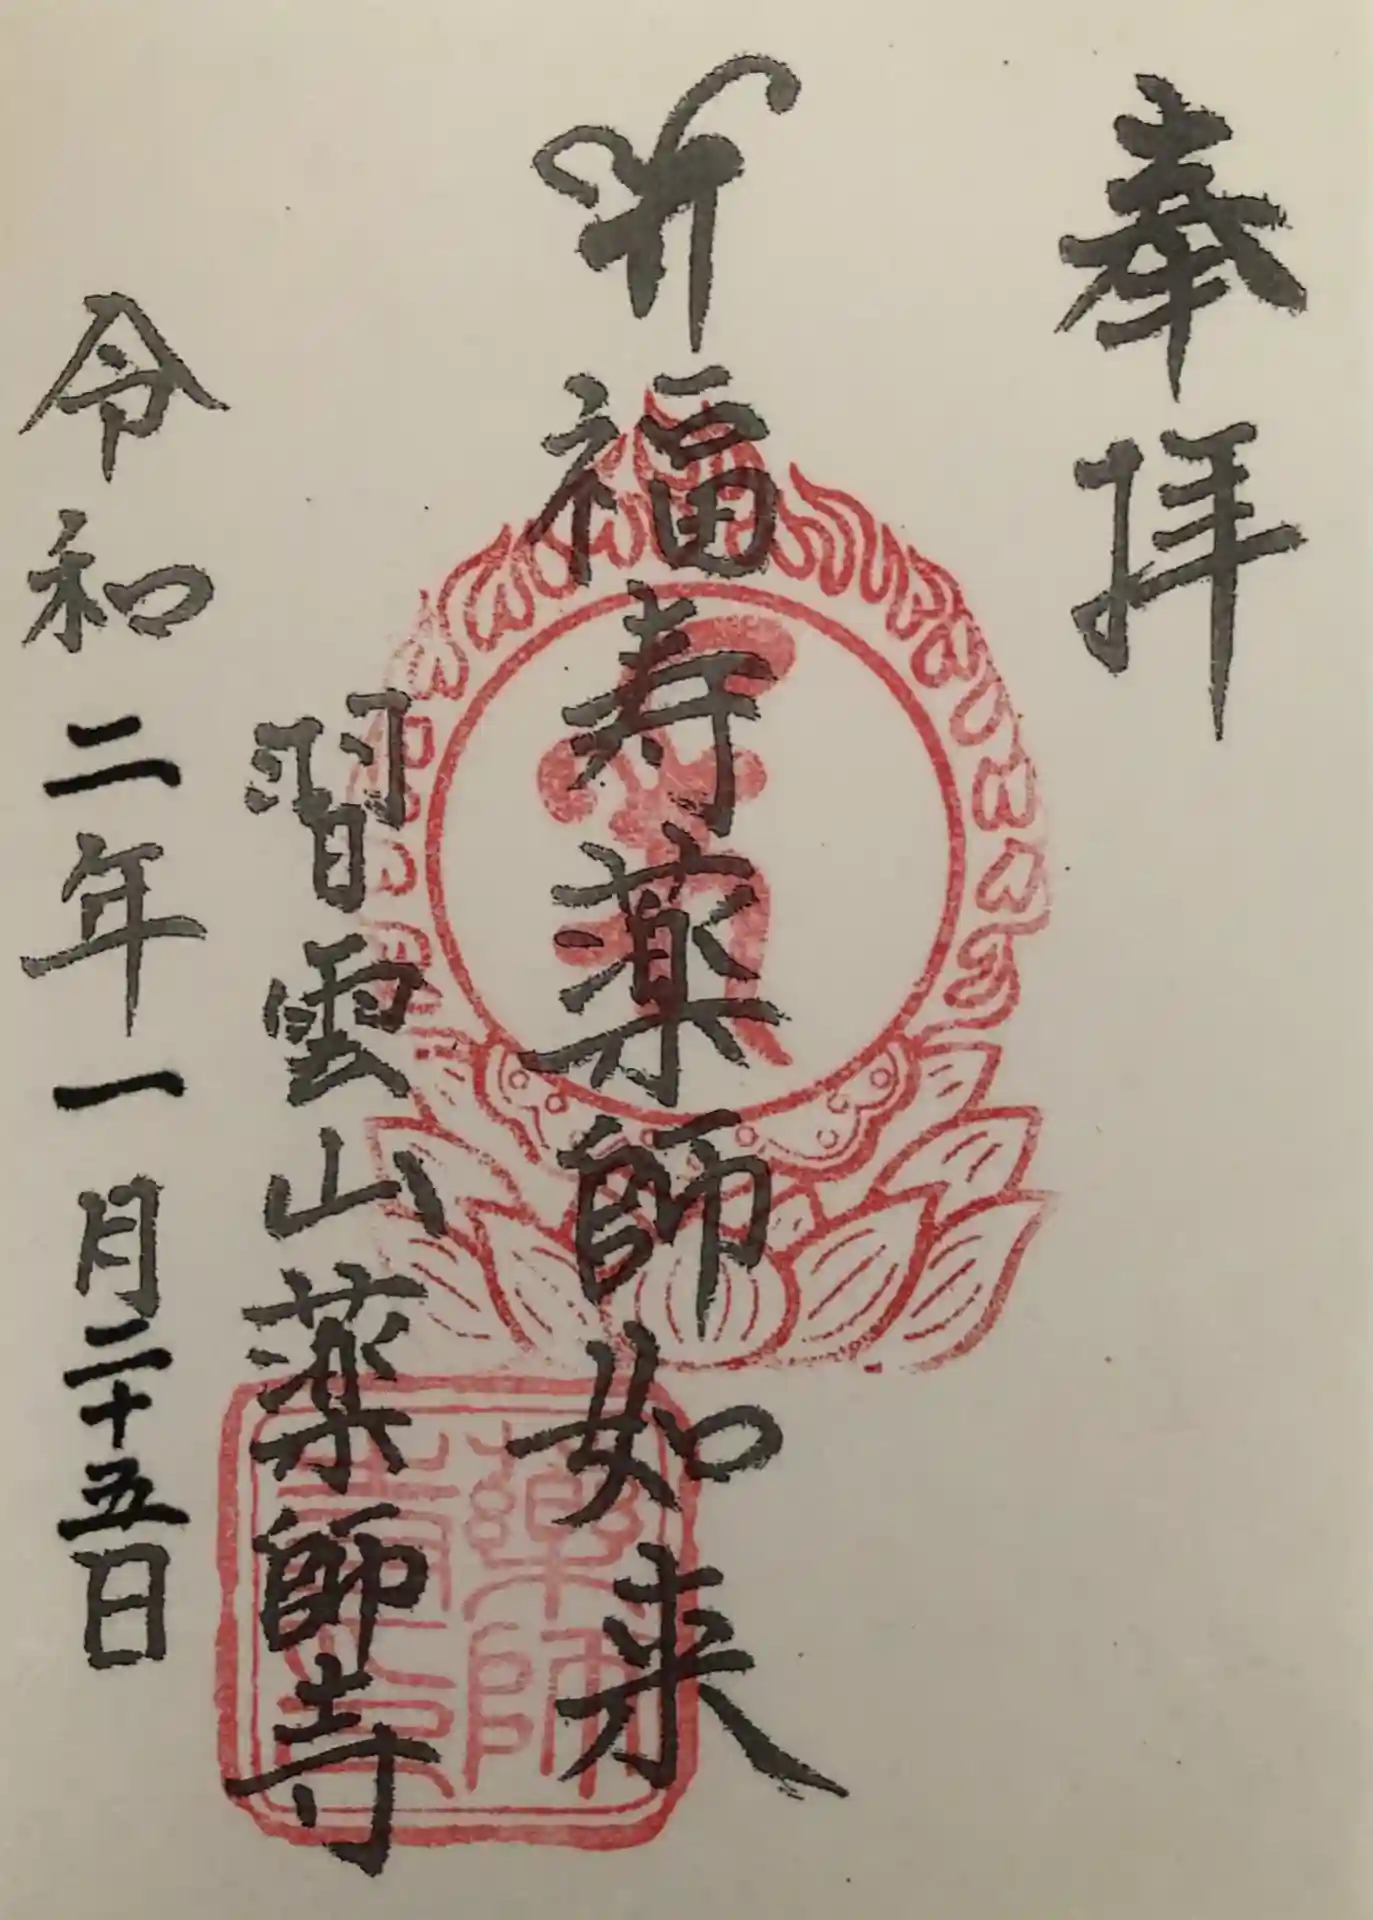 奉拝
福寿薬師如来
習雲山薬師寺
令和二年一月二十五日
藥師
寺印